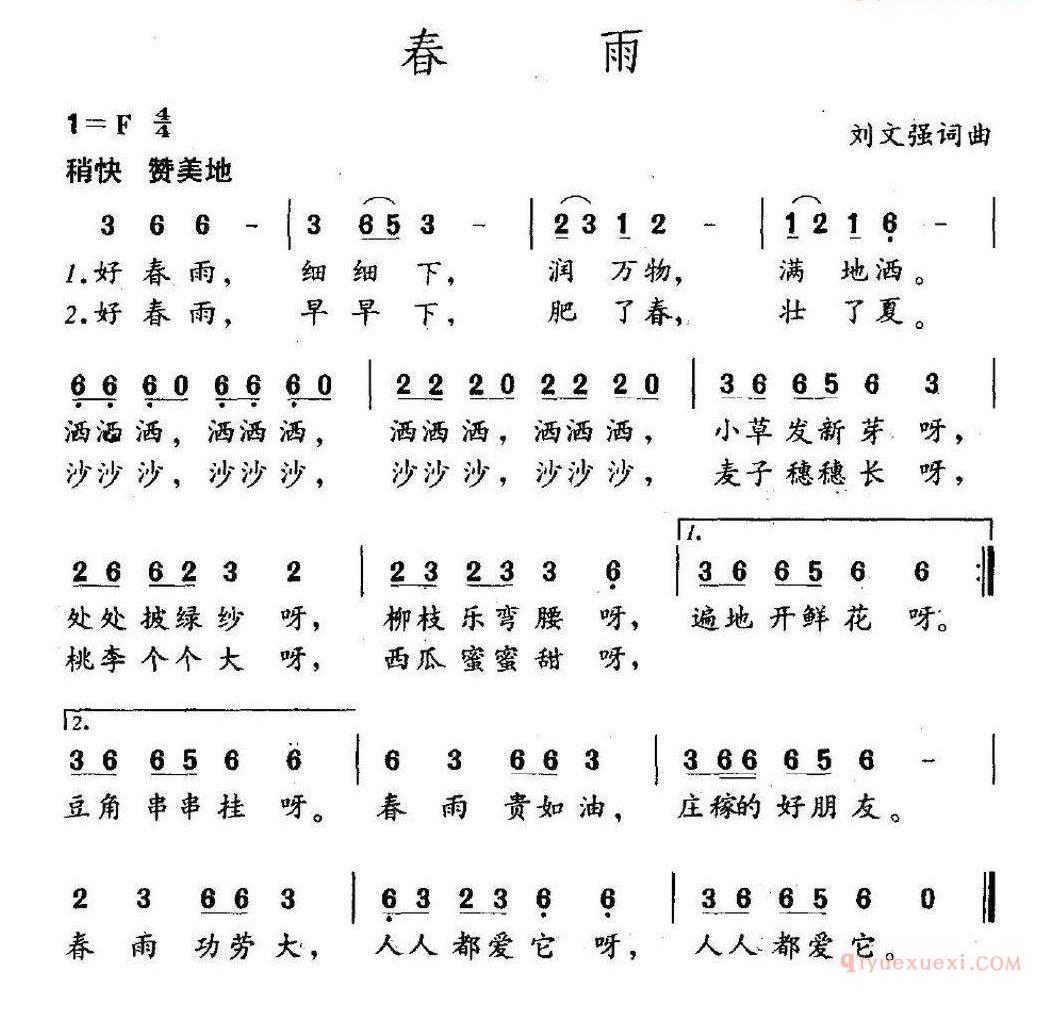 春 雨
1=F 4/4
刘文强词曲
稍快 赞美地
3 6 6 - | 3 6 5 3 - | 2 3 1 2 - | 1 2 1 6 - |
1.好春雨, 细细下, 润万物, 满地洒。
2.好春雨, 早早下, 肥了春, 壮了夏。
6 6 6 0 6 6 6 0 | 2 2 2 0 2 2 2 0 | 3 6 6 5 6 3 |
洒洒洒, 洒洒洒, 洒洒洒, 洒洒洒, 小草发新芽呀,
沙沙沙, 沙沙沙, 沙沙沙, 沙沙沙, 麦子穗穗长呀,
1.
2 6 6 2 3 2 | 2 3 2 3 3 6 | 3 6 6 5 6 6 :||
处处披绿纱呀, 柳枝乐弯腰呀, 遍地开鲜花呀。
桃李个个大呀, 西瓜蜜蜜甜呀,
2.
3 6 6 5 6 6 | 6 3 6 6 3 | 3 6 6 6 5 6 - |
豆角串串挂呀。 春雨贵如油, 庄稼的好朋友。
2 3 6 6 3 | 6 3 2 3 6 6 | 3 6 6 5 6 0 ||
春雨功劳大, 人人都爱它呀, 人人都爱它。
qiyuexuexi.COM